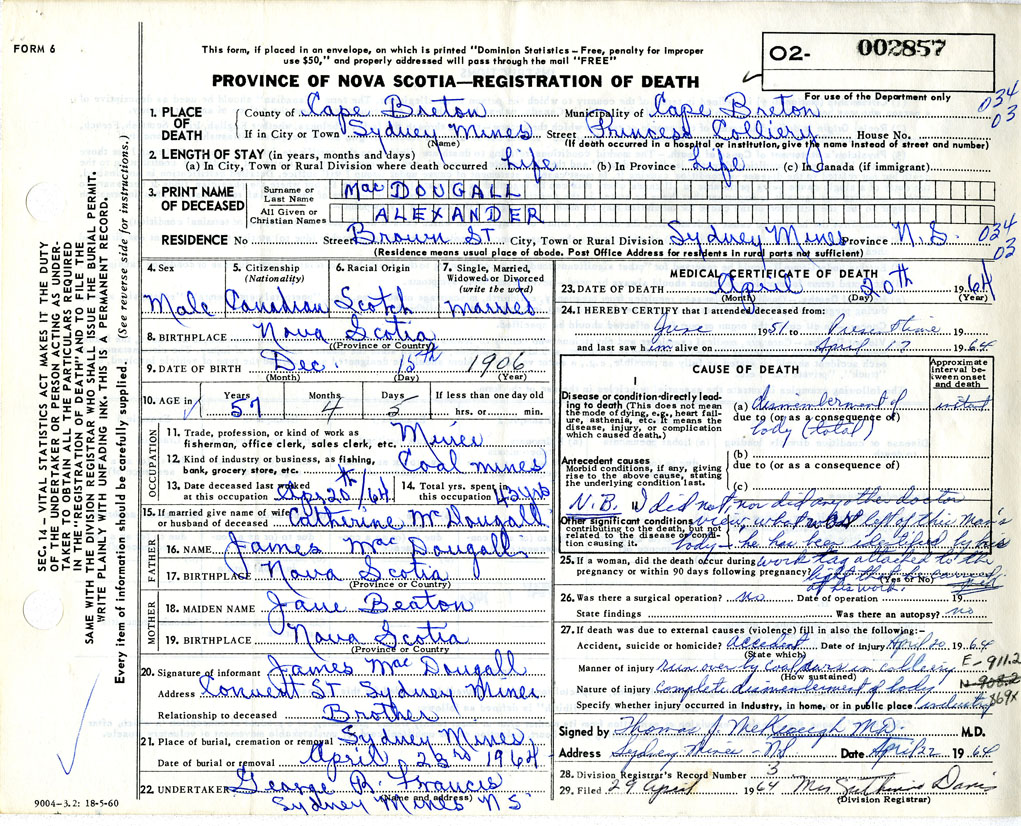 FORM 6
This form, if placed in an envelope, on which is printed "Dominion Statistics – Free, penalty for improper
use $50," and properly addressed will pass through the mail "FREE"
02- 002857
For use of the Department only
PROVINCE OF NOVA SCOTIA—REGISTRATION OF DEATH
SEC. 14 – VITAL STATISTICS ACT MAKES IT THE DUTY
OF THE UNDERTAKER OR PERSON ACTING AS UNDER-
TAKER TO OBTAIN ALL THE PARTICULARS REQUIRED
IN THE "REGISTRATION OF DEATH" AND TO FILE THE
SAME WITH THE DIVISION REGISTRAR WHO SHALL ISSUE THE BURIAL PERMIT.
WRITE PLAINLY WITH UNFADING INK. THIS IS A PERMANENT RECORD.
Every item of information should be carefully supplied. (See reverse side for instructions.)
1. PLACE OF DEATH County of Cape Breton Municipality of Cape Breton 034
03
If in City or Town Sydney Mines Street Princess Colliery House No.
(Name) (If death occurred in a hospital or institution, give the name instead of street and number)
2. LENGTH OF STAY (in years, months and days)
(a) In City, Town or Rural Division where death occurred Life (b) In Province Life (c) In Canada (if immigrant)
3. PRINT NAME OF DECEASED Surname or Last Name MacDOUGALL
All Given or Christian Names ALEXANDER
RESIDENCE No Street Brown ST City, Town or Rural Division Sydney Mines Province N.S. 034
03
(Residence means usual place of abode. Post Office Address for residents in rural parts not sufficient)
4. Sex Male
5. Citizenship (Nationality) Canadian
6. Racial Origin Scotch
7. Single, Married, Widowed or Divorced (write the word) Married
8. BIRTHPLACE Nova Scotia
(Province or Country)
9. DATE OF BIRTH Dec. 15th 1906
(Month) (Day) (Year)
10. AGE in Years 57 Months 4 Days 5 If less than one day old hrs. or min.
OCCUPATION
11. Trade, profession, or kind of work as fisherman, office clerk, sales clerk, etc. Miner
12. Kind of industry or business, as fishing, bank, grocery store, etc. Coal mines
13. Date deceased last worked at this occupation Apr 20th/64
14. Total yrs. spent in this occupation 42 yrs
15. If married give name of wife or husband of deceased Catherine McDougall
FATHER
16. NAME James MacDougall
17. BIRTHPLACE Nova Scotia
(Province or Country)
MOTHER
18. MAIDEN NAME Jane Beaton
19. BIRTHPLACE Nova Scotia
(Province or Country)
20. Signature of informant James MacDougall
Address Convent ST. Sydney Mines
Relationship to deceased Brother
21. Place of burial, cremation or removal Sydney Mines,
Date of burial or removal April 23rd 1964
22. UNDERTAKER George B. Francis
(Name and address)
Sydney Mines N S.
9004–3.2: 18-5-60
MEDICAL CERTIFICATE OF DEATH
23. DATE OF DEATH April 20th 1964
(Month) (Day) (Year)
24. I HEREBY CERTIFY that I attended deceased from:
June 1951 to Present time 19
and last saw him alive on April 17 1964
CAUSE OF DEATH
Approximate interval between onset and death
I
Disease or condition directly leading to death (This does not mean the mode of dying, e.g., heart failure, asthenia, etc. It means the disease, injury, or complication which caused death.)
(a) dismemberment of instant
due to (or as a consequence of)
body (total)
Antecedent causes
Morbid conditions, if any, giving rise to the above cause, stating the underlying condition last.
(b)
due to (or as a consequence of)
(c)
II
Other significant conditions contributing to the death, but not related to the disease or condition causing it.
N.B. I did not, nor did any other doctor
view what was left of this man's
body – he has been identified by his
work tag attached to the
of his work.
25. If a woman, did the death occur during pregnancy or within 90 days following pregnancy?
(Yes or No)
26. Was there a surgical operation? No Date of operation 19
State findings Was there an autopsy? no
27. If death was due to external causes (violence) fill in also the following:–
Accident, suicide or homicide? accident Date of injury April 20 1964
(State which)
Manner of injury run over by coal cars in colliery E-911.2
(How sustained)
Nature of injury Complete dismemberment of body
Specify whether injury occurred in Industry, in home, or in public place? industry 869x
Signed by Thomas J. McKeough M.D. M.D.
Address Sydney Mines – NS Date April 22 1964
28. Division Registrar's Record Number 3
29. Filed 29 April 1964 Mrs Davis
(Division Registrar)